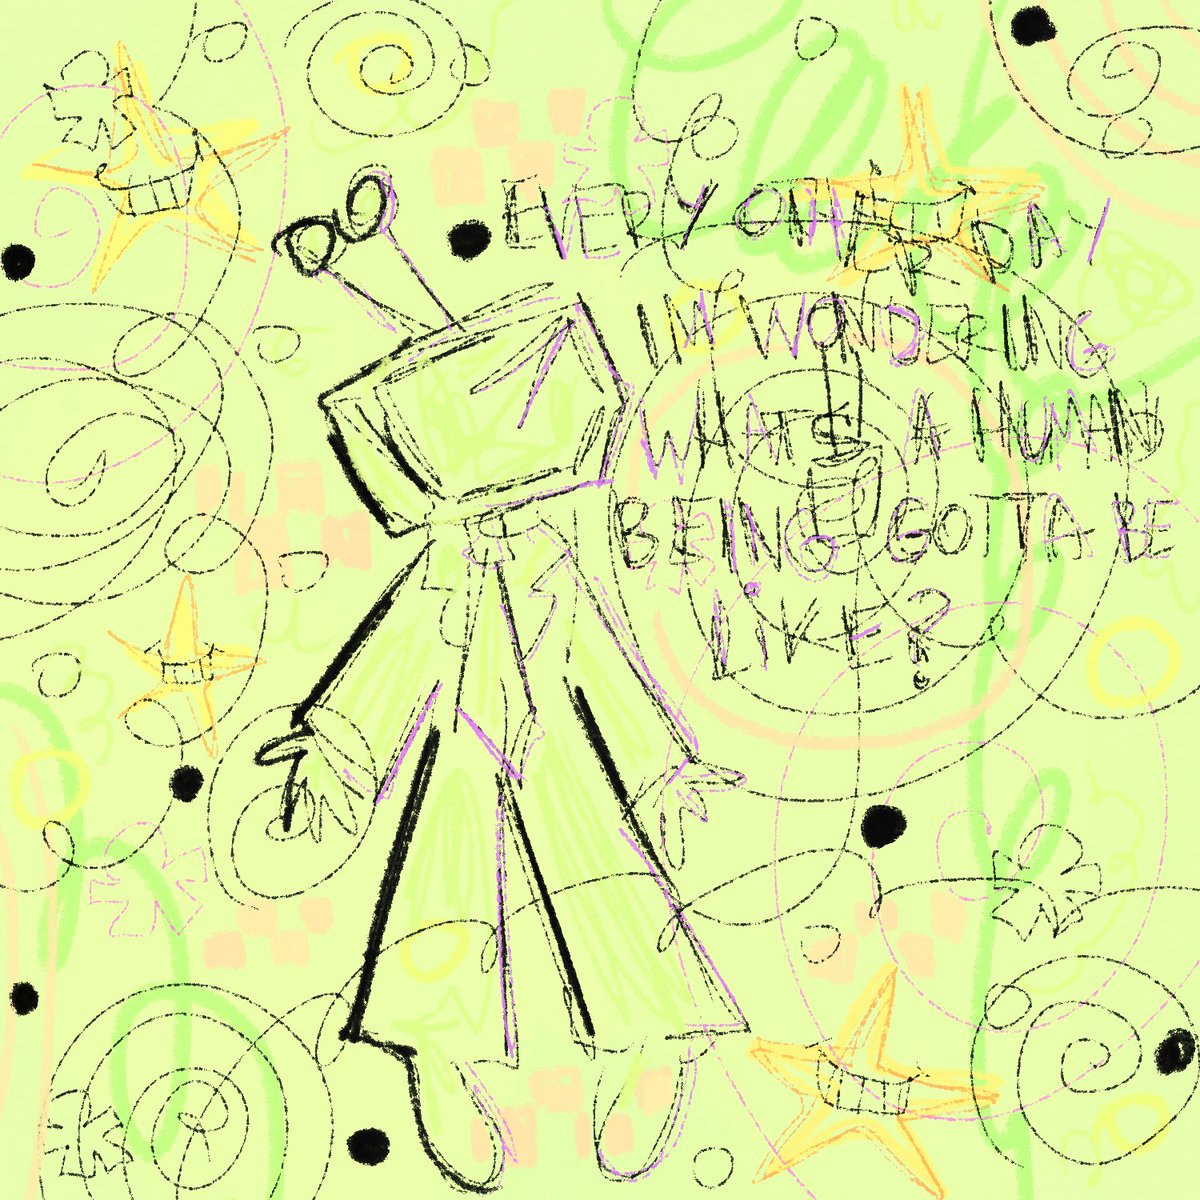 EVERY OTHER DAY
IM WONDERING
WHATS A HUMAN
BEING GOTTA BE
LIKE?